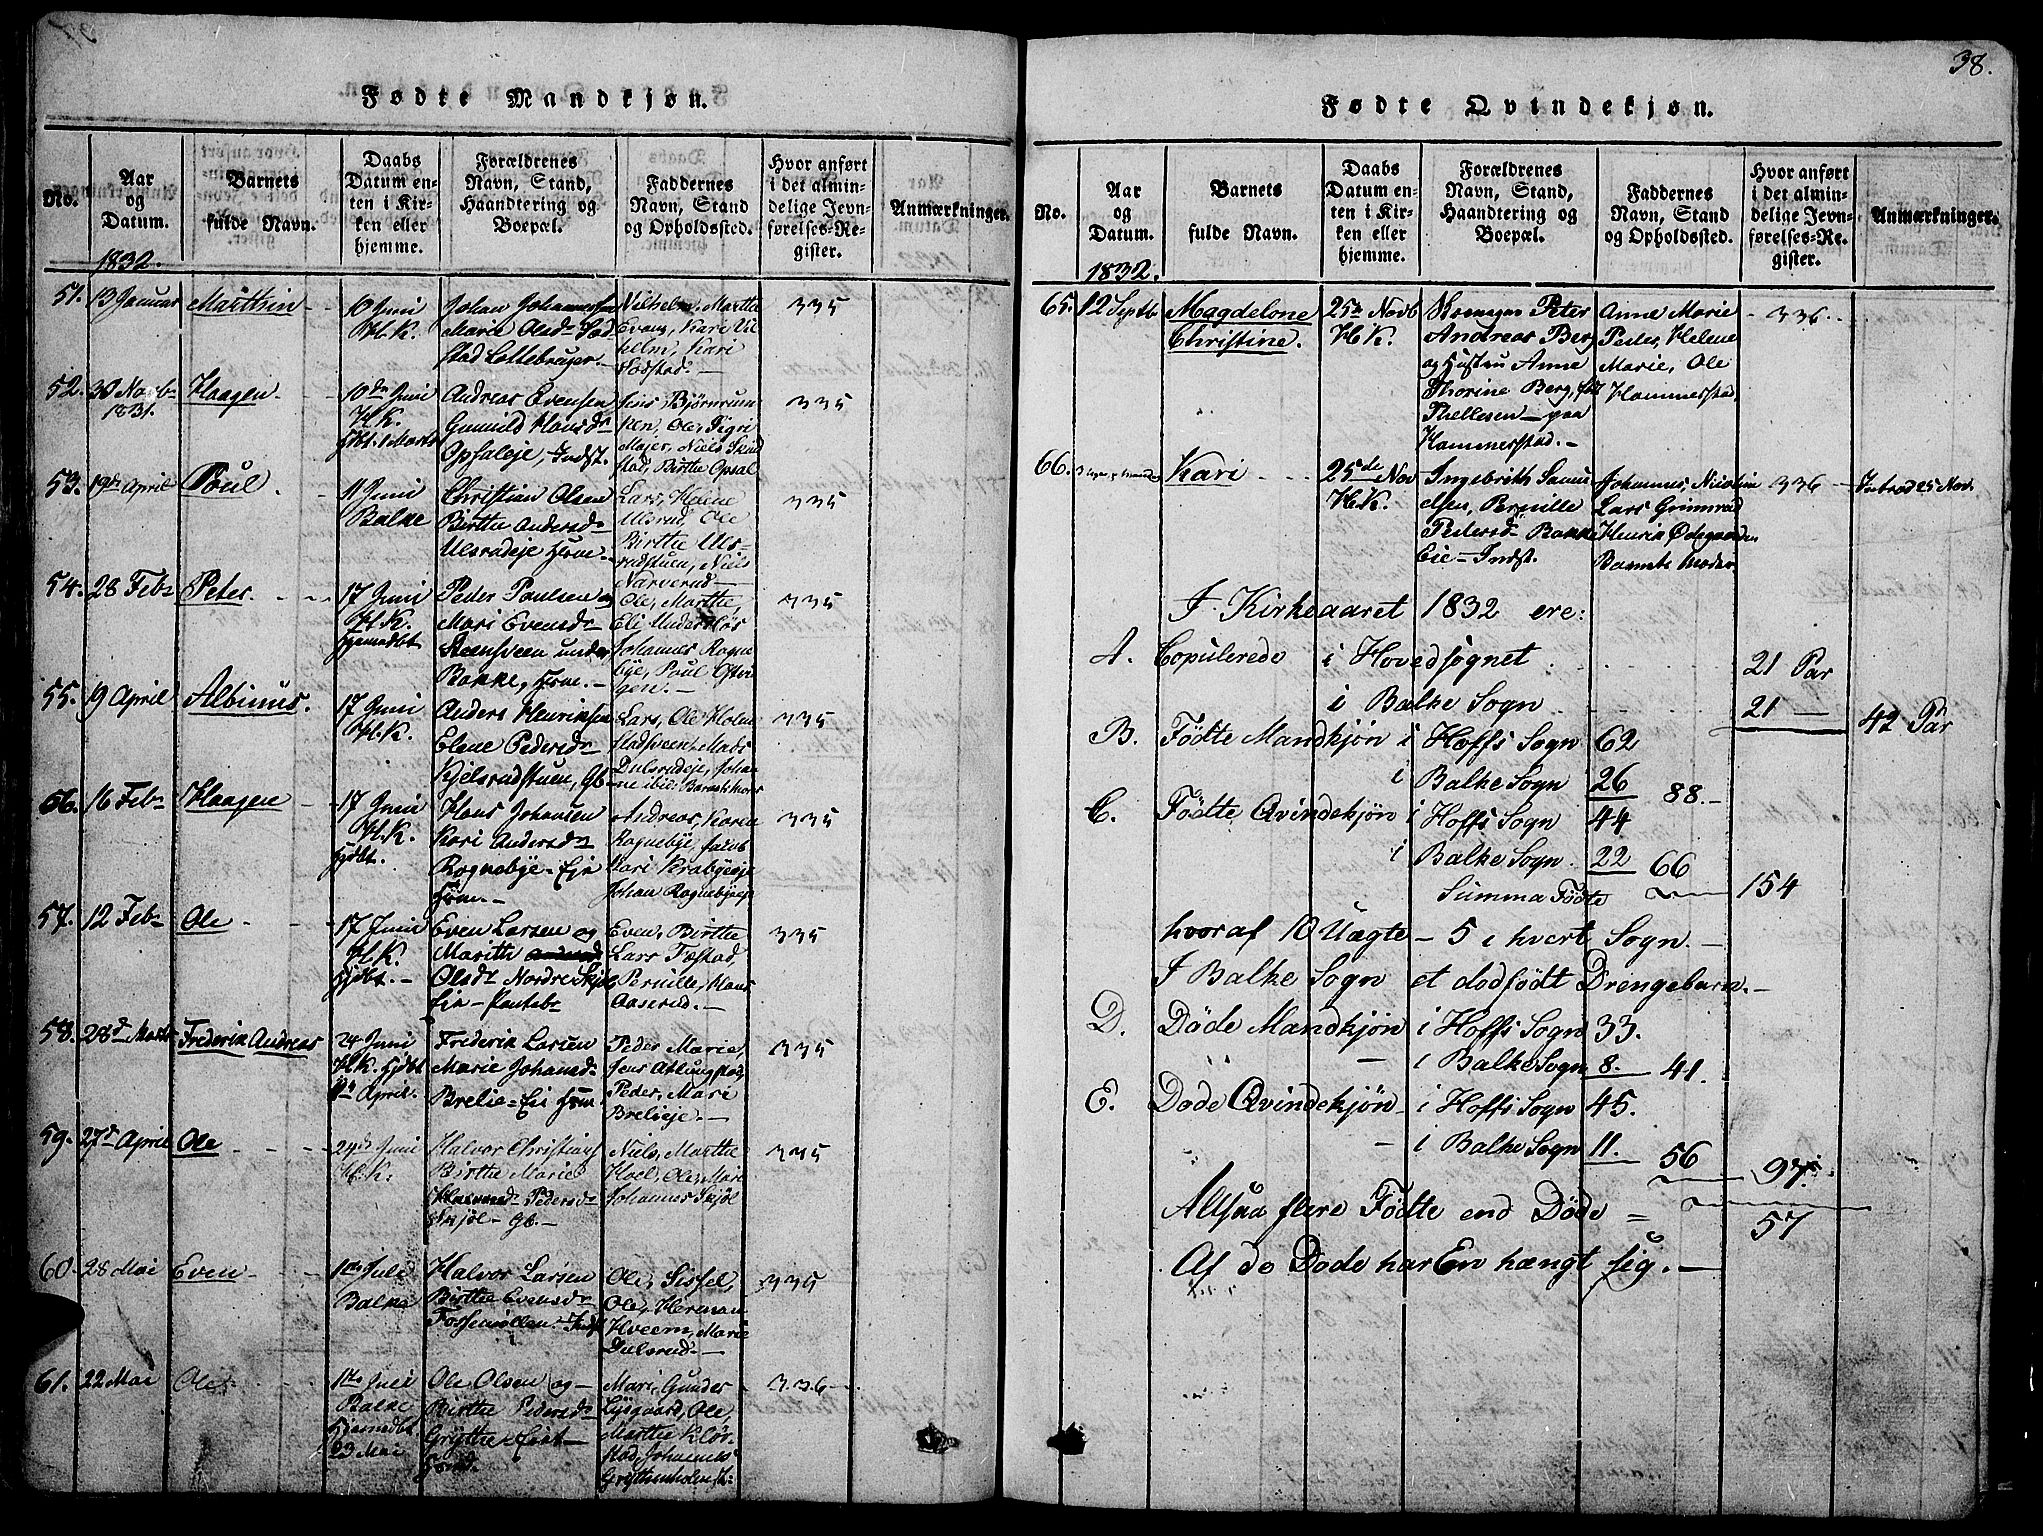 38.
Fødte Mandkjøn.
No.
Aar
og
Datum.
1832.
Barnets
fulde Navn.
Daabs
Datum en-
ten i Kir-
ken eller
hjemme.
Forældrenes
Navn, Stand,
Haandtering og
Boepæl.
Faddernes
Navn, Stand
og Opholdssted.
Hvor anført
i det almin-
delige Jevn-
førelses-Re-
gister.
Anmærkninger.
51. 13 Januar
Marthin
10 Juni
H.K.
Johan Johannesen
Marie Olsdr
335
52. 30 Novb
1831.
Haagen
10de Juni
H.K.
Andreas Evensen
Gunnild Hansdr
Opsaleje, Indst.
Jens Bjørnerum
Ole, Sigri
Majer, Niels
stad, Birthe Opsal
335
53. 19de April
Poul
11 Juni
Balke
Christian Olsen
Birthe Andersdr
Ulsrudeje Hme
Lars, Helene
Ulsrud, Ole
Birthe Uls-
rudstuen, Niels
Narverud
335
54. 28 Feb
Peter
17 Juni
H.K.
hjemmedbt
Peder Paulsen og
Mari Evensdr
Steensveen under
Bakke, Hme.
Ole, Marthe,
Eli Underkløs
Johannes Rogne
bye, Poul
335
55. 19 April
Albinus.
17 Juni
H.K.
Anders Henriksen
Elene Pedersdr
Kjelsrudstuen, Gb
Lars, Ole
Stadsveen, Mads
Dulsrudeje, Johan
ne ibid: Barnets Moer
335
56. 16 Feb
Haagen
17 Juni
H.K.
hjdbt.
Hans Johansen
Kari Andersdr
Rognebye-Eje
Hme.
Andreas, Karen
Rognebye, Jacob
Kari Krabyeje
Johan Rognebyeje
335
57. 12 Feb
Ole
17 Juni
H.K.
hjdbt.
Even Larsen og
Marith
Olsdr Nordre
Eje
Even, Birthe
Lars Fæstad,
Pernille, Hans
Aaserud.
335
58. 28d Marts
Frederik Andreas
24 Juni
H.K. hjdbt
April.
Frederik Larsen
Marie Johansd.
Brelie-Eie Hme
Peder Marie,
Jens
Peder, Mari
Brelieje.
335
59. 27d April
Ole
24de Juni
H.K.
Halvor Christians
Birthe Marie
Pedersdr
Skjøl Gb.
Niels, Marthe
Hoel, Ole, Mari
Johannes Skjøl
335
60. 28 Mai
Even
1ste Juli
Balke
Halvor Larsen
Birthe Evensdr
Fossemøllen Indst
Ole, Sissel,
Ole, Herman
Hveem, Marie
Dulsrud.
335
61. 22 Mai
Ole
1ste Juli
Balke
hjemmedbt
23 Mai
Ole Olsen og
Birthe Pedersdr
Grytte
Mari, Gunder
Lysgaard, Ole,
Marthe Kløv
stad, Johannes
336
Fødte Qvindekjøn.
No.
Aar
og
Datum.
1832.
Barnets
fulde Navn.
Daabs
Datum en-
ten i Kir-
ken eller
hjemme.
Forældrenes
Navn, Stand,
Haandtering og
Boepæl.
Faddernes
Navn, Stand
og Opholdssted.
Hvor anført
i det almin-
delige Jevn-
førelses-Re-
gister.
Anmærkninger.
65. 12 Septb
Magdelone
Christine.
25de Novb
H.K.
Peter
Andreas Berg
og Hustru Anne
Thorine Berg, fød
Thellesen paa
Hammerstad.
Anne Marie
Peder, Helene
Marie, Ole
Hammerstad
336
66.
Kari
25de Nov
H.K.
Ingebrith Samu
elsen, Pernille
Pedersd Bakke
Eie Indst.
Johannes, Nicoline
Lars Grimsrud
Henrik Ødegaarden
Barnets Moder
336
Introd 25 Nov.
I Kirkeaaret 1832 ere:
A. Copulerede i Hovedsognet 21 Par
i Balke Sogn 21
42 Par
B. Fødte Mandkjøn i Hoffs Sogn 62
i Balke Sogn 26 88.
C. Fødte Qvindekjøn i Hoffs Sogn 44
i Balke Sogn. 22 66
Summa Fødte 154
hvoraf 10 Uægte – 5 i hvert Sogn.
I Balke Sogn et dødfødt Drengebarn.
D. Døde Mandkjøn i Hoffs Sogn 33.
i Balke Sogn 8. 41.
E. Døde Qvindekjøn i Hoffs Sogn 45.
i Balke Sogn 11. 56 97.
Altsaa flere Fødte end Døde = 57
Af de Døde har En hængt sig.